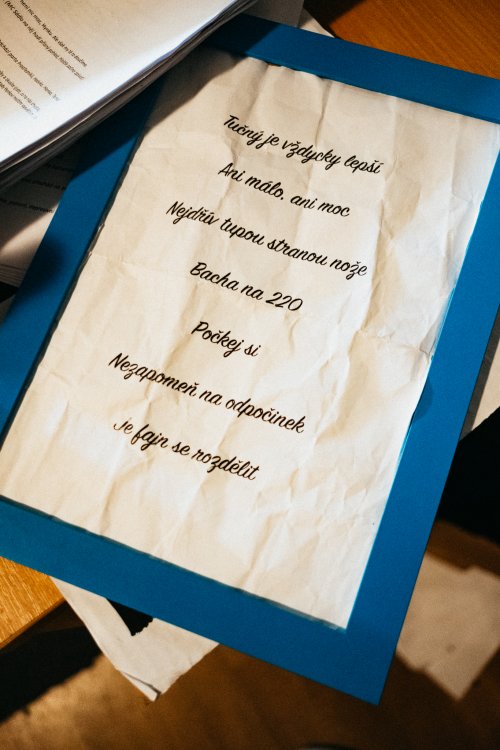 Tučný je vždycky lepší
Ani málo, ani moc
Nejdřív tupou stranou nože
Bacha na 220
Počkej si
Nezapomeň na odpočinek
Je fajn se rozdělit